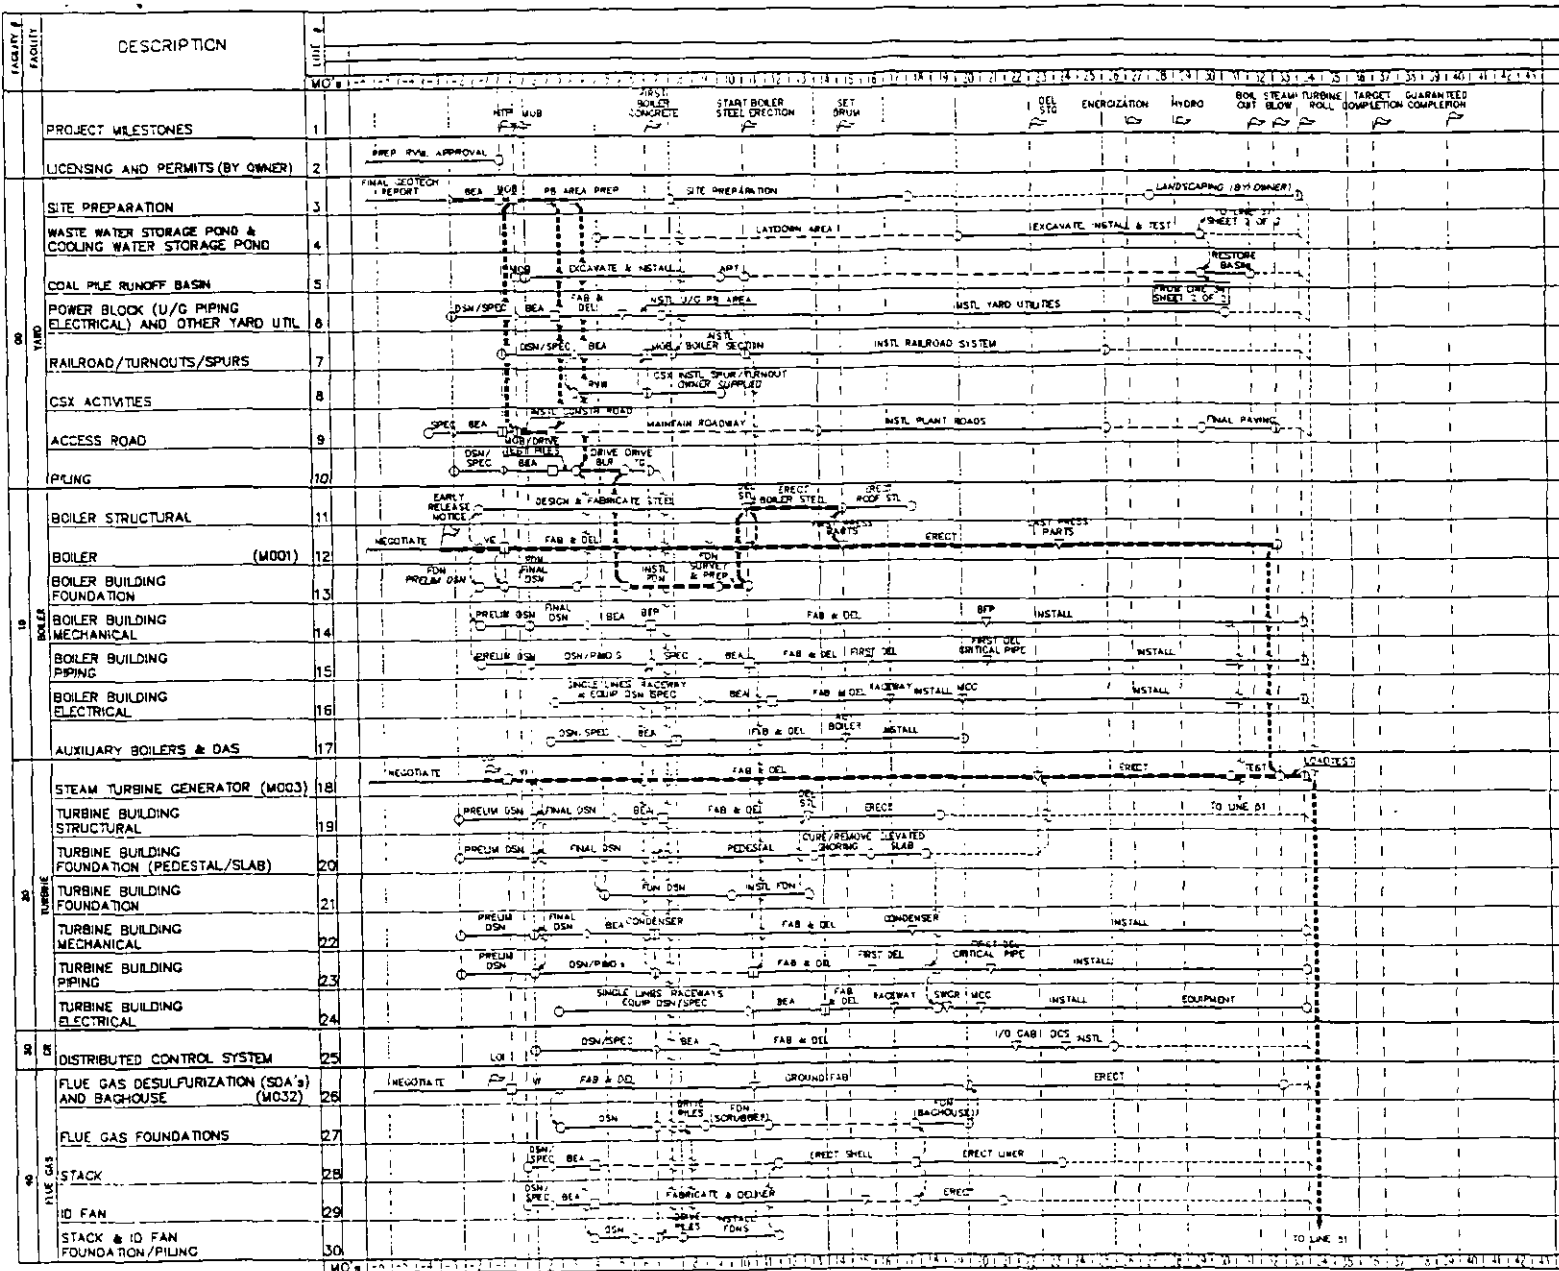 FACILITY #
FACILITY
DESCRIPTION
LINE #
MO's
PROJECT MILESTONES 1
NTP MOB
FIRST BOILER CONCRETE
START BOILER STEEL ERECTION
SET DRUM
DEL STG
ENERGIZATION
HYDRO
BOIL OUT
STEAM BLOW
TURBINE ROLL
TARGET COMPLETION
GUARANTEED COMPLETION
LICENSING AND PERMITS (BY OWNER) 2
PREP RVW. APPROVAL
00
YARD
SITE PREPARATION 3
FINAL GEOTECH REPORT
BEA MOB PB AREA PREP SITE PREPARATION LANDSCAPING (BY OWNER)
WASTE WATER STORAGE POND &
COOLING WATER STORAGE POND 4
LAYDOWN AREA EXCAVATE INSTALL & TEST
COAL PILE RUNOFF BASIN 5
MOB EXCAVATE & INSTALL APT RESTORE BASIN
POWER BLOCK (U/G PIPING
ELECTRICAL) AND OTHER YARD UTIL 6
DSN/SPEC BEA FAB & DEL INSTL U/G PB AREA INSTL YARD UTILITIES
RAILROAD/TURNOUTS/SPURS 7
DSN/SPEC BEA MOB INSTL BOILER SECTION INSTL RAILROAD SYSTEM
CSX ACTIVITIES 8
RVW CSX INSTL SPUR/TURNOUT OWNER SUPPLIED
ACCESS ROAD 9
SPEC BEA INSTL CONSTR ROAD MAINTAIN ROADWAY INSTL PLANT ROADS FINAL PAVING
PILING 10
DSN/SPEC BEA MOB/DRIVE TEST PILES DRIVE BLR DRIVE TG
10
BOILER
BOILER STRUCTURAL 11
EARLY RELEASE NOTICE
DESIGN & FABRICATE STEEL DEL STL ERECT BOILER STEEL ERECT ROOF STL
BOILER (M001) 12
NEGOTIATE FAB & DEL FIRST PRESS PARTS ERECT LAST PRESS PARTS
BOILER BUILDING
FOUNDATION 13
FDN PRELIM DSN FDN FINAL DSN INSTL FDN FDN SURVEY & PREP
BOILER BUILDING
MECHANICAL 14
PRELIM DSN FINAL DSN BEA BFP FAB & DEL BFP INSTALL
BOILER BUILDING
PIPING 15
PRELIM DSN DSN/P&ID'S SPEC BEA FAB & DEL FIRST DEL FIRST DEL CRITICAL PIPE INSTALL
BOILER BUILDING
ELECTRICAL 16
SINGLE LINES RACEWAY & EQUIP DSN SPEC BEA FAB & DEL RACEWAY INSTALL MCC INSTALL
AUXILIARY BOILERS & DAS 17
DSN/SPEC BEA FAB & DEL BOILER INSTALL
20
TURBINE
STEAM TURBINE GENERATOR (M003) 18
NEGOTIATE FAB & DEL ERECT TEST LOADTEST
TURBINE BUILDING
STRUCTURAL 19
PRELIM DSN FINAL DSN BEA FAB & DEL DEL STL ERECT TO LINE 51
TURBINE BUILDING
FOUNDATION (PEDESTAL/SLAB) 20
PRELIM DSN FINAL DSN PEDESTAL CURE/REMOVE SHORING ELEVATED SLAB
TURBINE BUILDING
FOUNDATION 21
FDN DSN INSTL FDN
TURBINE BUILDING
MECHANICAL 22
PRELIM DSN FINAL DSN BEA CONDENSER FAB & DEL CONDENSER INSTALL
TURBINE BUILDING
PIPING 23
PRELIM DSN DSN/P&ID's FAB & DEL FIRST DEL FIRST DEL CRITICAL PIPE INSTALL
TURBINE BUILDING
ELECTRICAL 24
SINGLE LINES RACEWAYS EQUIP DSN/SPEC BEA FAB & DEL RACEWAY SWGR MCC INSTALL EQUIPMENT
30
DISTRIBUTED CONTROL SYSTEM 25
DSN/SPEC BEA FAB & DEL I/O CAB DCS INSTL
40
FLUE GAS
FLUE GAS DESULFURIZATION (SDA's)
AND BAGHOUSE (M032) 26
NEGOTIATE LOI FAB & DEL GROUND FAB ERECT
FLUE GAS FOUNDATIONS 27
DSN DRIVE PILES FDN (SCRUBBER) FDN (BAGHOUSE)
STACK 28
DSN/SPEC BEA ERECT SHELL ERECT LINER
ID FAN 29
DSN/SPEC BEA FABRICATE & DELIVER ERECT
STACK & ID FAN
FOUNDATION/PILING 30
DSN DRIVE PILES INSTALL FDNS TO LINE 51
MO's